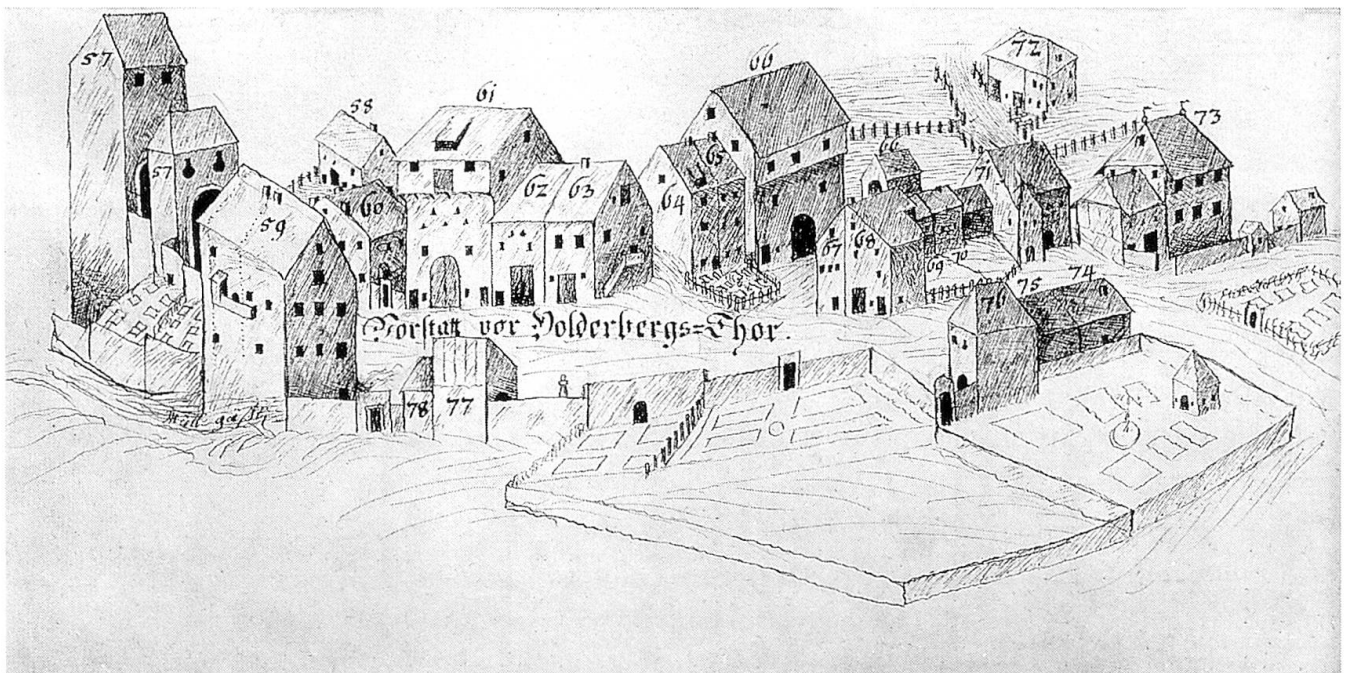 57
57
58
59
60
61
62
63
64
65
66
66
67
68
69
70
71
72
73
74
75
76
77
78
Vorstatt vor Holderbergs=Thor.